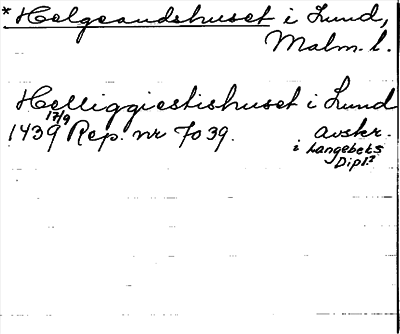 * Helgeandshuset i Lund,
Malm. l.
Helliggiestishuset i Lund
1439 17/9 Rep. nr 7039. avskr.
i Langebeks
Dipl.